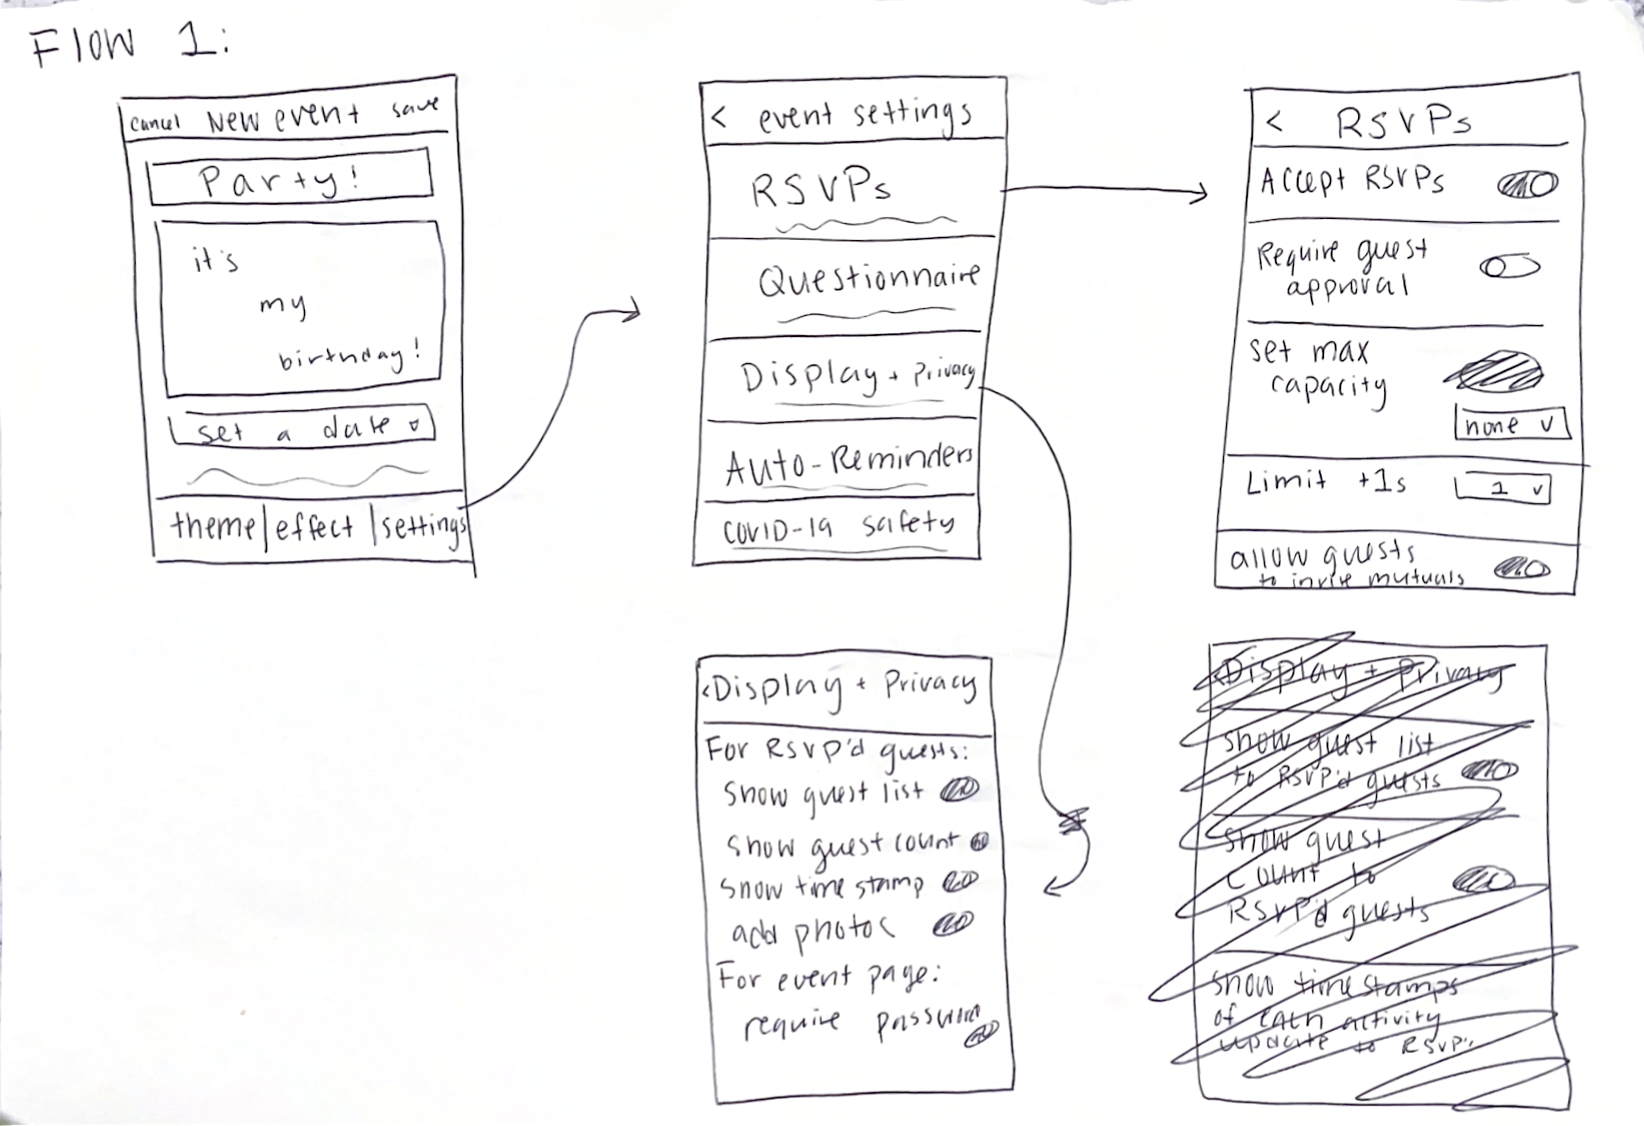 Flow 1:
Cancel New event save
Party!
it's
my
birthday!
set a date v
theme | effect | settings
< event settings
RSVPs
Questionnaire
Display + Privacy
Auto-Reminders
COVID-19 safety
< RSVPs
Accept RSVPs
Require guest
approval
set max
capacity
none v
Limit +1s 1 v
allow guests
to invite mutuals
<Display + Privacy
For RSVP'd guests:
Show guest list
Show guest count
Show time stamp
add photos
For event page:
require password
<Display + Privacy
Show guest list
to RSVP'd guests
Show guest
count to
RSVP'd guests
Show timestamps
of each activity
update to RSVP'